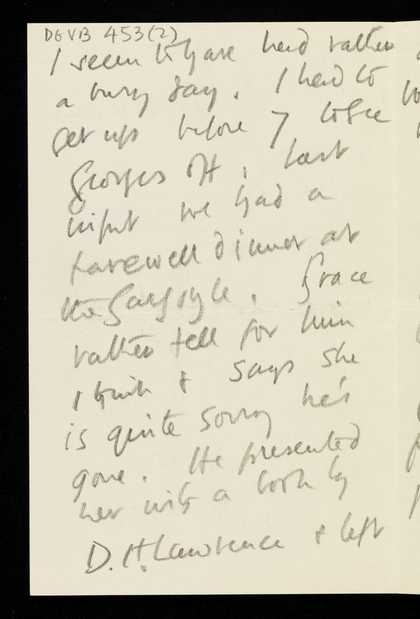 DGVB 453(2)
I seem to have had rather
a busy day. I had to
get up before 7 to see
Georges off. Last
night we had a
farewell dinner at
the Gargoyle. Grace
rather fell for him
I think & says she
is quite sorry he's
gone. He presented
her with a book by
D. H. Lawrence & left